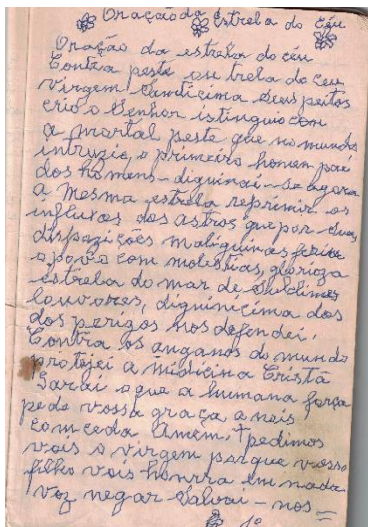 Oração da Estrela do Céu
Oração da estrela do céu
Contra peste ou trela do ceu
virgem Santicima seus peitos
crio o Senhor istinguio com
a mortal peste que no mundo
intruzio, o primeiro homem pai
dos homens - diguinai - se agora
a mesma estrela reprimir os
influxos dos astros que por suas
dispozições maliguinas ferira
o povo com molestias, glorioza
estrela do mar de sublimes
louvores, diguinicima dos
dos perigos nos defendei,
Contra os anganos do mundo
protejei a midicina Cristã
Sarai o que a humana força
pede vossa graça a nois
comceda Amem, † pedimos
vois o virgem porque vosso
filho vois honrra em nada
voz negar Salvai - nos =